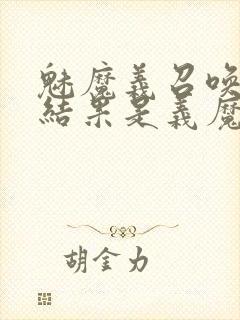 魅魔義召喚
結果是義魔
胡金力